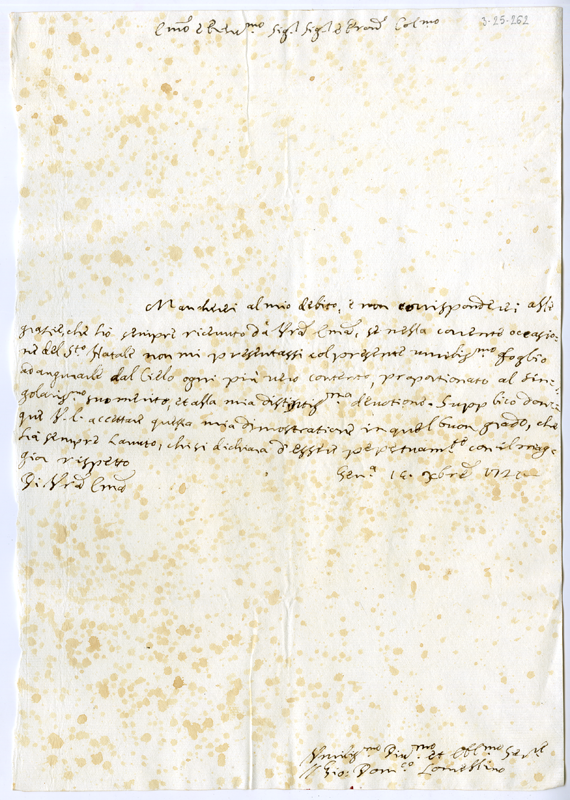 3-25-262
Em.o e Reve.mo Sig.r Sig.r e Pron.e Col.mo
Mancherei al mio debito, e non corrisponderei alle
grazie che hò sempre ricevuto da Vra Em.a, se nella corrente occasio-
ne del S.to Natale non mi presentassi col presente umiliss.mo foglio
ad augurarle dal Cielo ogni più vero contento, proporzionato al sin-
golariss.mo suo merito, et alla mia distintiss.ma devotione. Supplico don-
que V. E. accettare questa mia dimostratione in quel buon grado, che
hà sempre hauuto, chi si dichiara d'essere perpetuam.te con il mag-
gior rispetto
Gen.a xbre
Di Vra Em.a
Umiliss.mo Div.mo et Obl.mo Se.re
Gio: Dom.co Lomellino